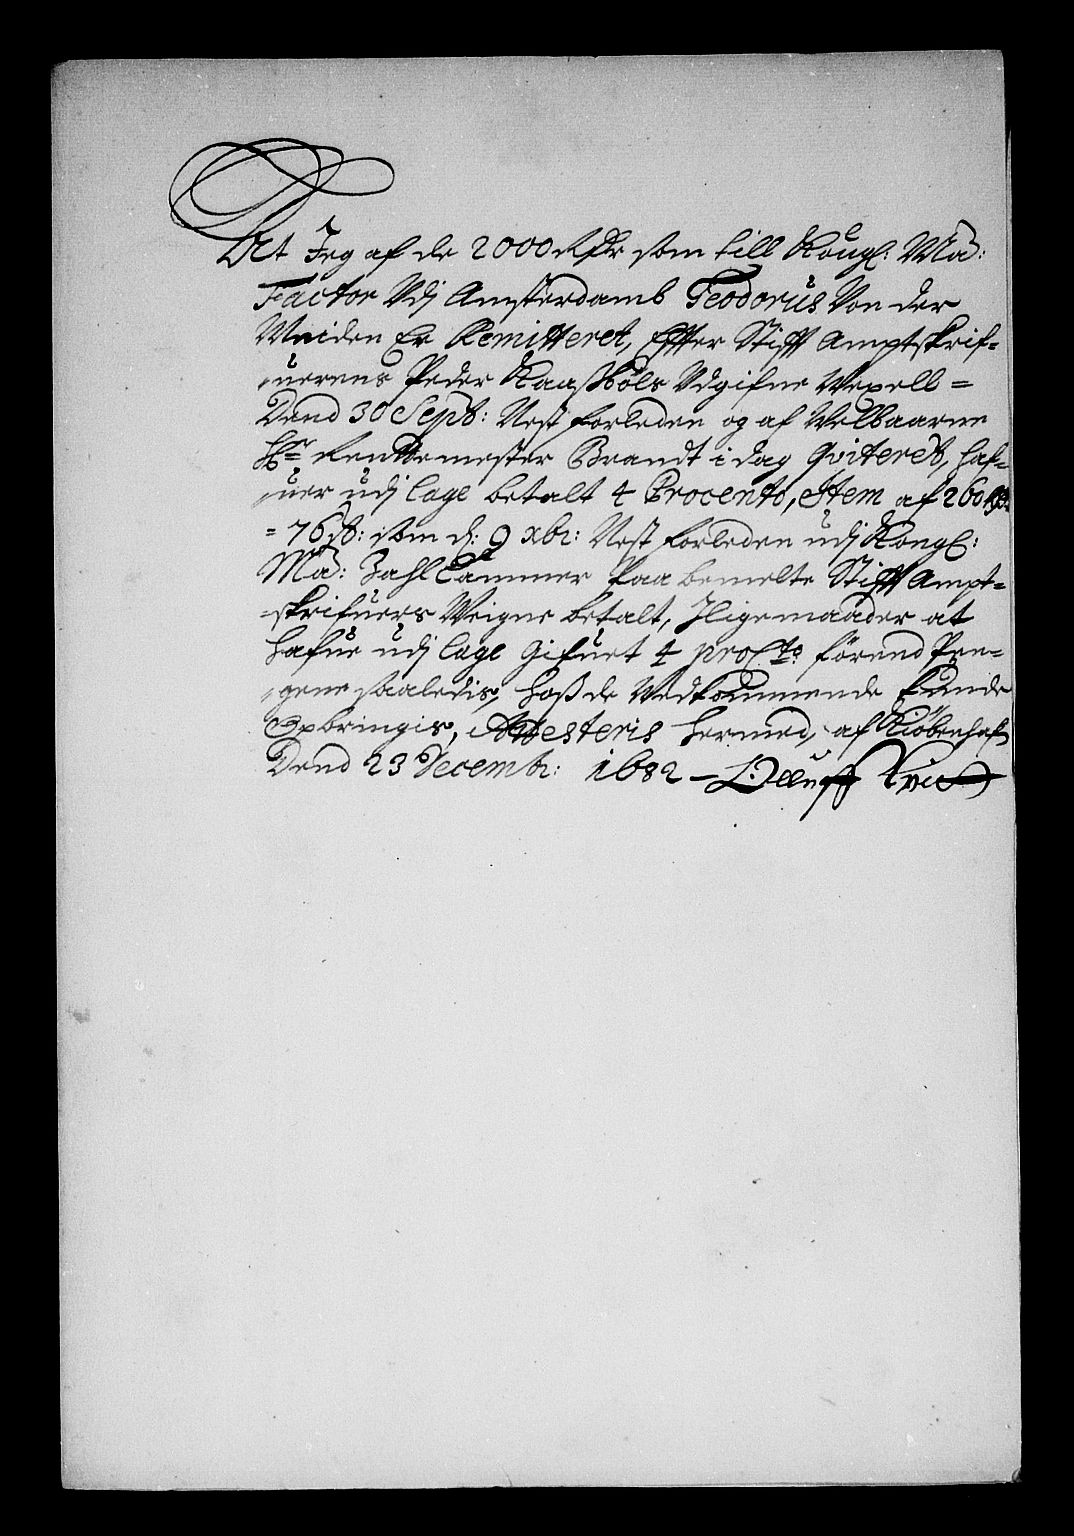 At Jeg af de 2000 Rdr som till Kongl: Ma:
Factor Udj Amsterdamb Teodorus Von der
Weiden Er Remitteret, Effter Stifft Amptskrif=
uerens Peder Kaasbøls Udgifne Wexell=
Dend 30 Sept: Nest forleden og af Welbaarne
Hr Rentemester Brandt i dag Qviteret, haf=
uer udj lage betalt 4 Procento, Item af 260 Rd:
=76 s: som d: 9 xbr: Nest forleden udj Kongl:
Ma: Zahl Cammer Paa bemelte Stifft Ampt=
=skrifuers Weigne betalt, Iligemaader at
hafue udj lage Gifuet 4 proCto førend Pen=
gene saaledis, hoss de Wedkommende kunde
Opbringis, Attesteris hermed, af Kiøbenhafn
Dend 23 Decembr: 1682 – Olluff Kvist